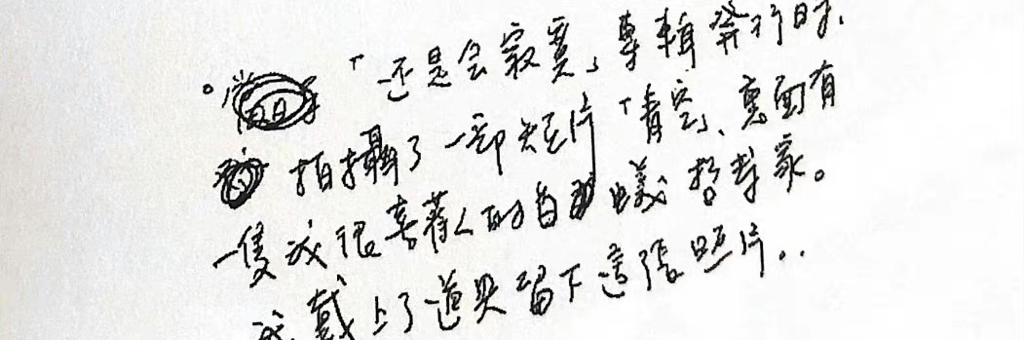 「还是会寂寞」專輯發行时、
拍攝了一部短片「青空」、裏面有
一隻我很喜歡的白蟻哲學家。
我戴上了道具留下這張照片..